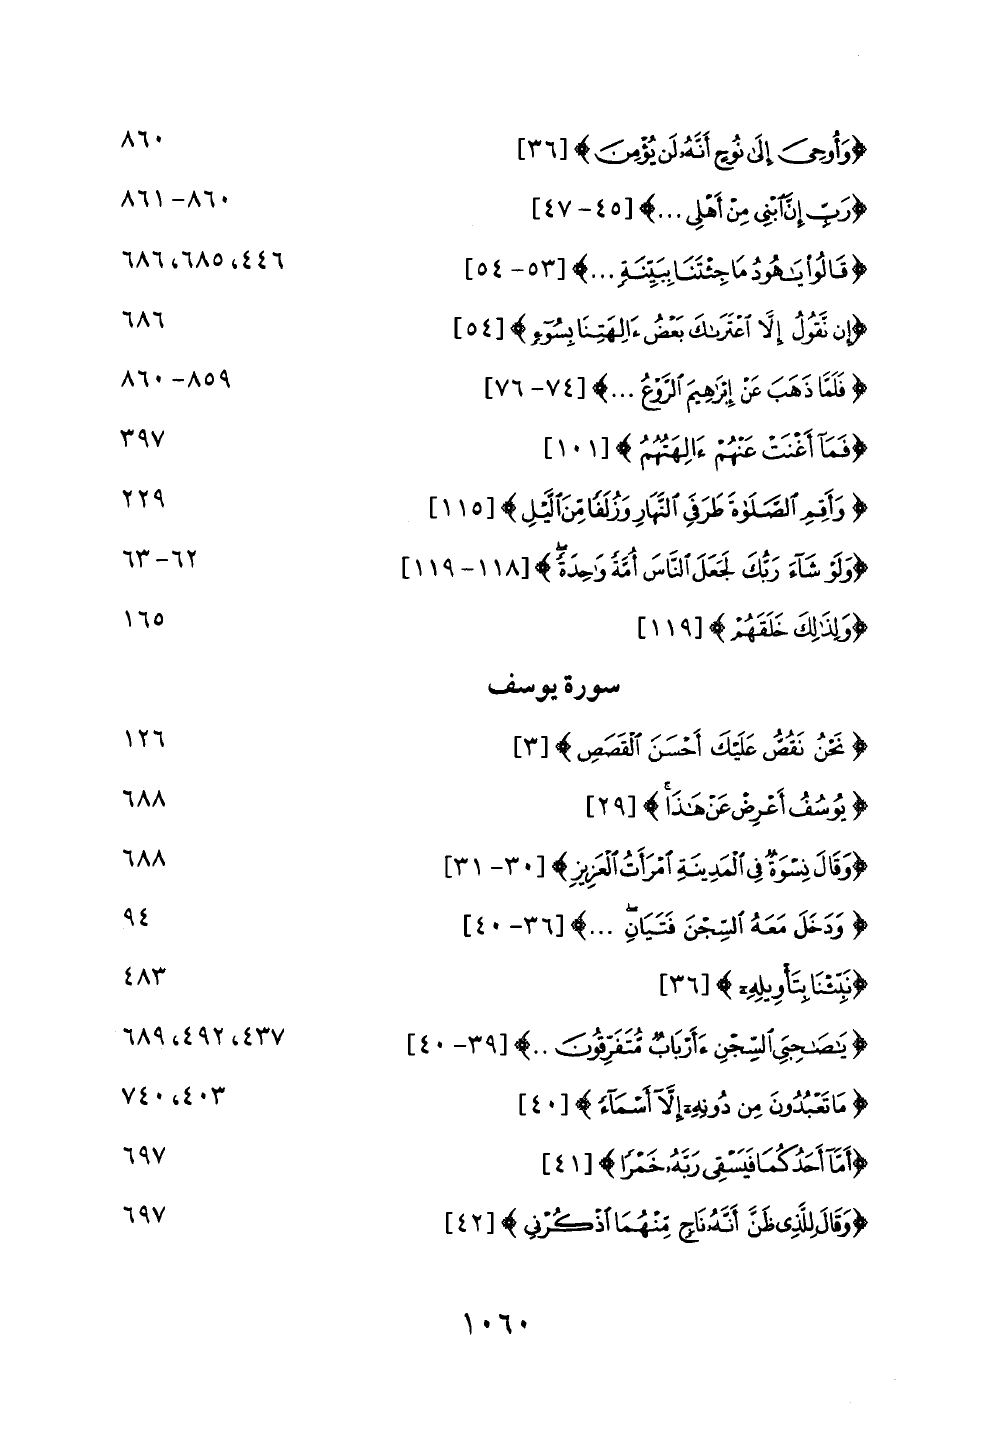 ﴿وَأُوحِىَ إِلَىٰ نُوحٍ أَنَّهُۥ لَن يُؤْمِنَ﴾ [٣٦] ٨٦٠
﴿رَبِّ إِنَّ ٱبْنِى مِنْ أَهْلِى ...﴾ [٤٥- ٤٧] ٨٦٠- ٨٦١
﴿قَالُوا۟ يَـٰهُودُ مَا جِئْتَنَا بِبَيِّنَةٍ ...﴾ [٥٣- ٥٤] ٤٤٦، ٦٨٥، ٦٨٦
﴿إِن نَّقُولُ إِلَّا ٱعْتَرَىٰكَ بَعْضُ ءَالِهَتِنَا بِسُوٓءٍ﴾ [٥٤] ٦٨٦
﴿فَلَمَّا ذَهَبَ عَنْ إِبْرَٰهِيمَ ٱلرَّوْعُ ...﴾ [٧٤- ٧٦] ٨٥٩- ٨٦٠
﴿فَمَآ أَغْنَتْ عَنْهُمْ ءَالِهَتُهُمُ﴾ [١٠١] ٣٩٧
﴿وَأَقِمِ ٱلصَّلَوٰةَ طَرَفَىِ ٱلنَّهَارِ وَزُلَفًا مِّنَ ٱلَّيْلِ﴾ [١١٥] ٢٢٩
﴿وَلَوْ شَآءَ رَبُّكَ لَجَعَلَ ٱلنَّاسَ أُمَّةً وَٰحِدَةً ۖ﴾ [١١٨- ١١٩] ٦٢- ٦٣
﴿وَلِذَٰلِكَ خَلَقَهُمْ﴾ [١١٩] ١٦٥
سورة يوسف
﴿نَحْنُ نَقُصُّ عَلَيْكَ أَحْسَنَ ٱلْقَصَصِ﴾ [٣] ١٢٦
﴿يُوسُفُ أَعْرِضْ عَنْ هَـٰذَا ۚ﴾ [٢٩] ٦٨٨
﴿وَقَالَ نِسْوَةٌ فِى ٱلْمَدِينَةِ ٱمْرَأَتُ ٱلْعَزِيزِ﴾ [٣٠- ٣١] ٦٨٨
﴿وَدَخَلَ مَعَهُ ٱلسِّجْنَ فَتَيَانِ ۖ ...﴾ [٣٦- ٤٠] ٩٤
﴿نَبِّئْنَا بِتَأْوِيلِهِۦ﴾ [٣٦] ٤٨٣
﴿يَـٰصَـٰحِبَىِ ٱلسِّجْنِ ءَأَرْبَابٌ مُّتَفَرِّقُونَ ..﴾ [٣٩- ٤٠] ٤٣٧، ٤٩٢، ٦٨٩
﴿مَا تَعْبُدُونَ مِن دُونِهِۦٓ إِلَّآ أَسْمَآءً﴾ [٤٠] ٤٠٣، ٧٤٠
﴿أَمَّآ أَحَدُكُمَا فَيَسْقِى رَبَّهُۥ خَمْرًا﴾ [٤١] ٦٩٧
﴿وَقَالَ لِلَّذِى ظَنَّ أَنَّهُۥ نَاجٍ مِّنْهُمَا ٱذْكُرْنِى﴾ [٤٢] ٦٩٧
١٠٦٠